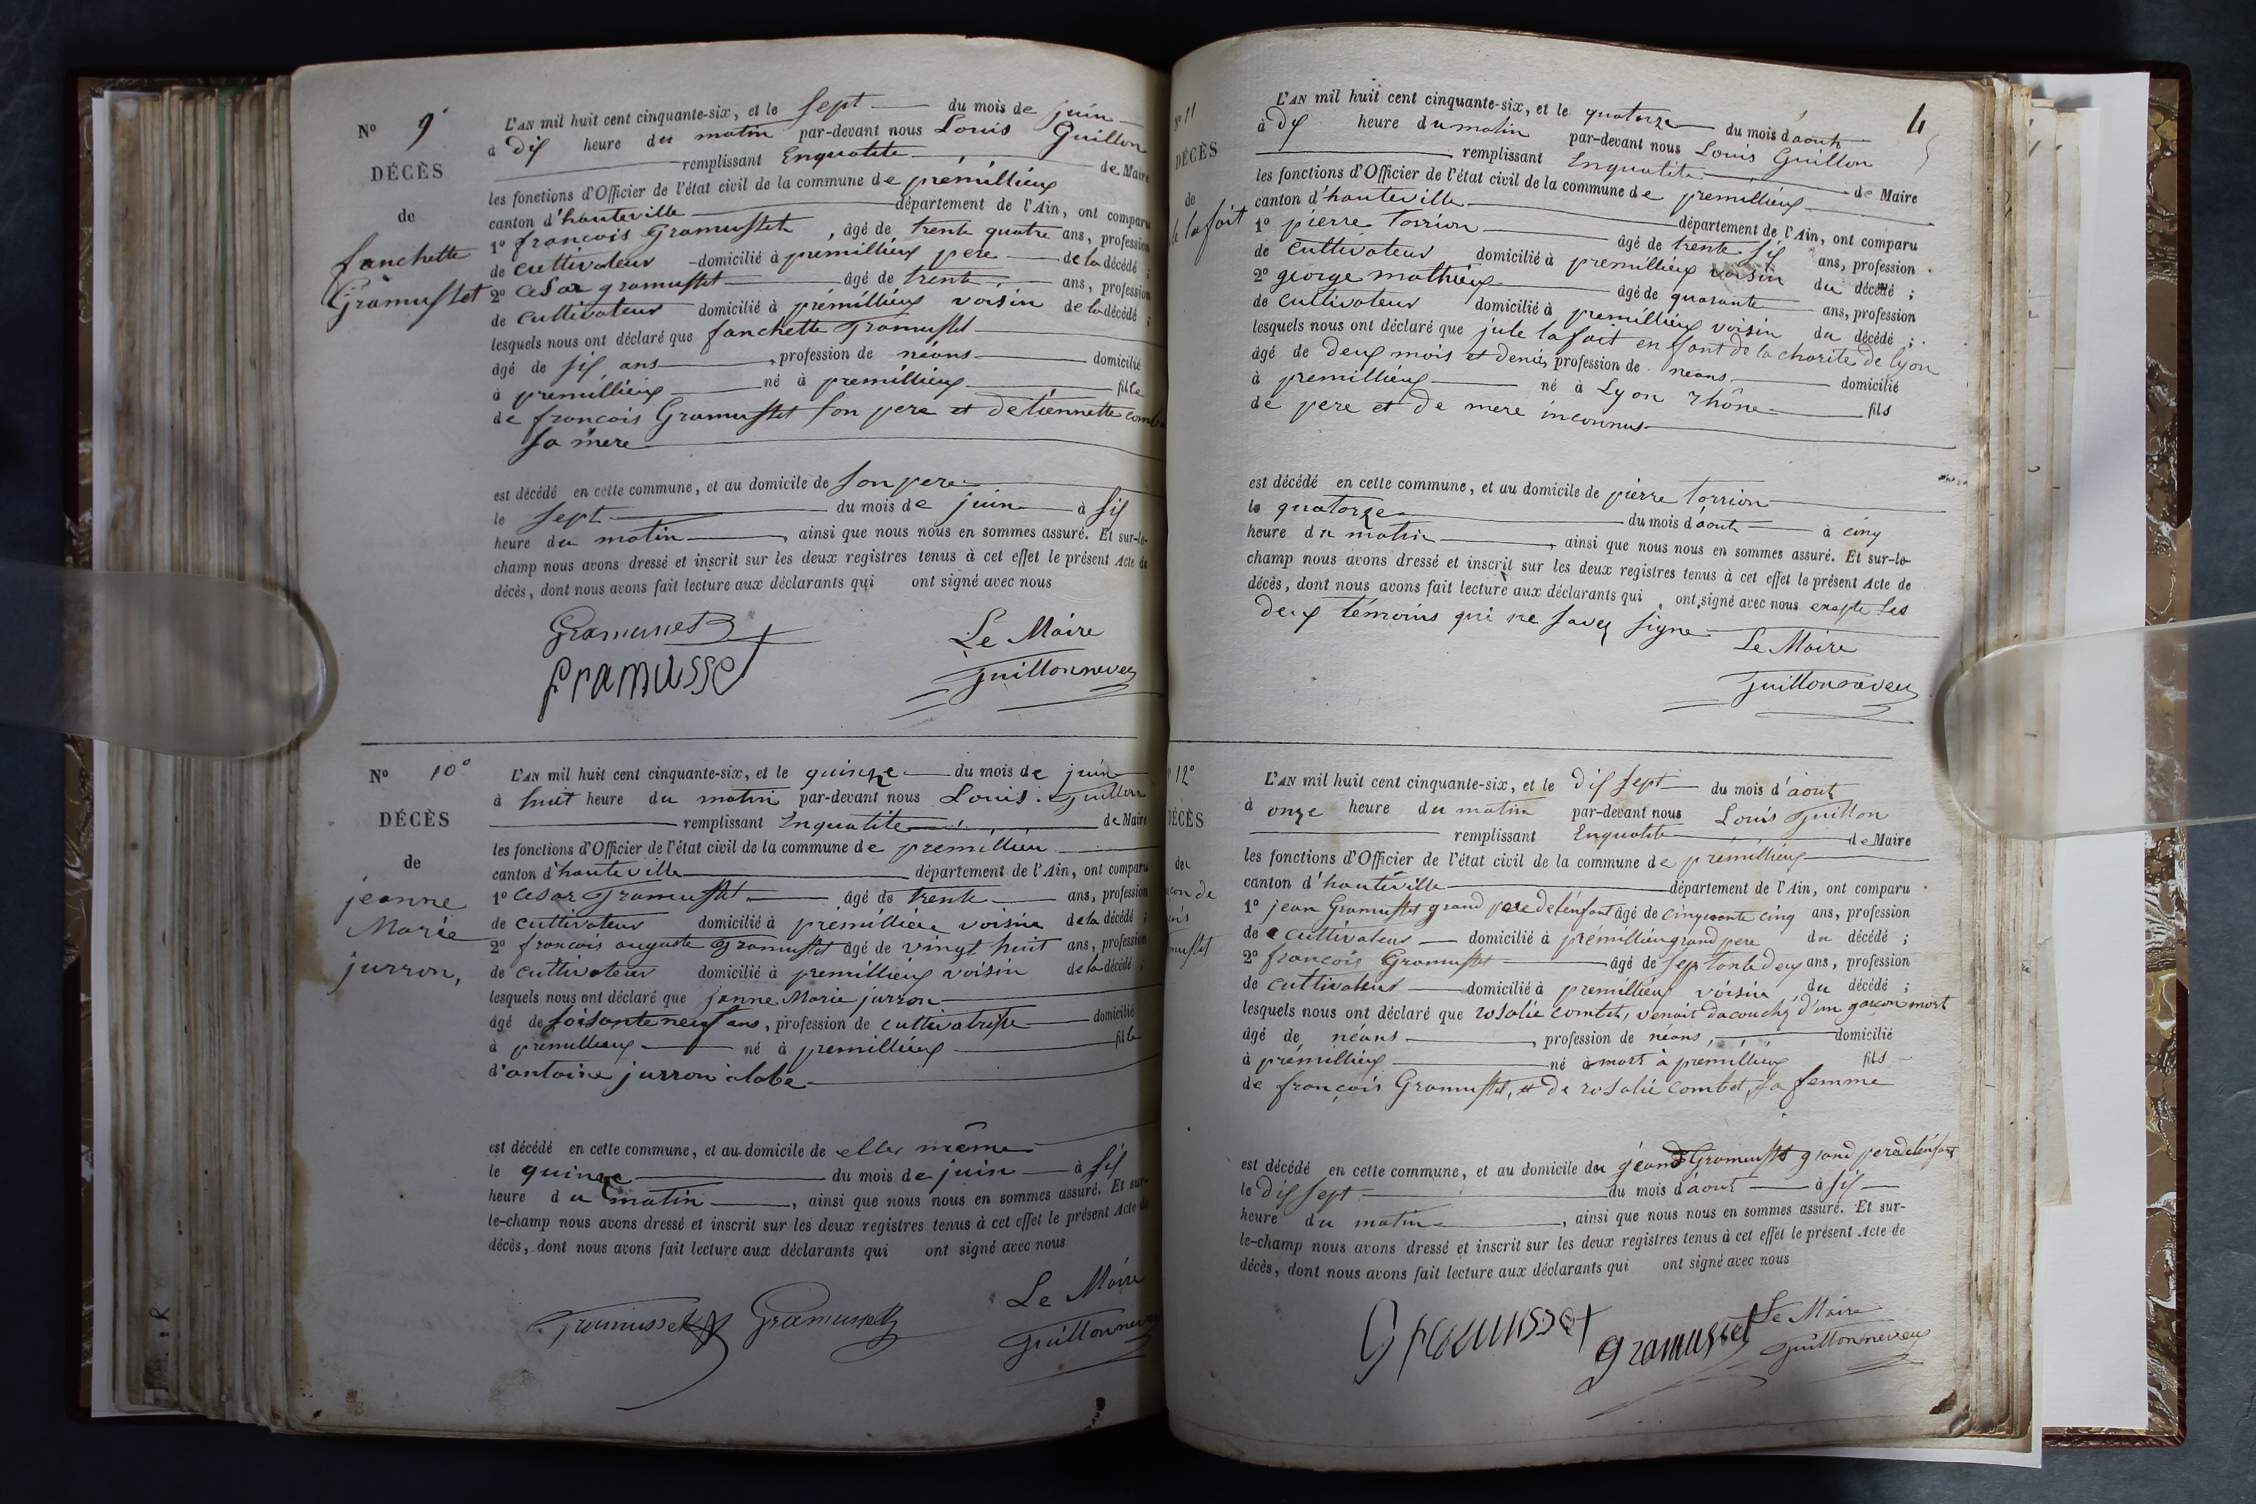 N° 9°
DÉCÈS
de
fanchette
Gramusset
L'AN mil huit cent cinquante-six, et le sept du mois de juin
à dix heure du matin par-devant nous Louis Guillon
remplissant Enqualité de Maire
les fonctions d'Officier de l'état civil de la commune de prémillieux
canton d'hauteville département de l'Ain, ont comparu
1° francois Gramusset, âgé de trente quatre ans, profession
de cultivateur domicilié à premillieux pere de la décédé ;
2° cesar gramusset âgé de trente ans, profession
de cultivateur domicilié à prémillieux voisin de la décédé ;
lesquels nous ont déclaré que fanchette Gramusset
âgé de six ans, profession de néans domicilié
à premillieux né à premillieux fille
de francois Gramusset son pere et detiennette comb
sa mere
est décédé en cette commune, et au domicile de son pere
le sept du mois de juin à six
heure du matin, ainsi que nous nous en sommes assuré. Et sur-le-
champ nous avons dressé et inscrit sur les deux registres tenus à cet effet le présent Acte de
décès, dont nous avons fait lecture aux déclarants qui ont signé avec nous
Gramusset
gramusset
Le Maire
Guillon neveu
N° 10°
DÉCÈS
de
jeanne
Marie
jurron,
L'AN mil huit cent cinquante-six, et le quinze du mois de juin
à huit heure du matin par-devant nous Louis Guillon
remplissant Enqualité de Maire
les fonctions d'Officier de l'état civil de la commune de prémillieu
canton d'hauteville département de l'Ain, ont comparu
1° cesar Gramusset âgé de trente ans, profession
de cultivateur domicilié à prémillieu voisin de la décédé ;
2° francois auguste Gramusset âgé de vingt huit ans, profession
de cultivateur domicilié à premillieux voisin de la décédé ;
lesquels nous ont déclaré que janne Marie jurron
âgé de soisante neuf ans, profession de cultivatrisse domicilié
à premillieux né à premillieux fille
d'antoine jurron alabe
est décédé en cette commune, et au domicile de elles même
le quinze du mois de juin à six
heure du matin, ainsi que nous nous en sommes assuré. Et sur-
le-champ nous avons dressé et inscrit sur les deux registres tenus à cet effet le présent Acte de
décès, dont nous avons fait lecture aux déclarants qui ont signé avec nous
Gramusset Gramusset
Le Maire
Guillon neveu
4
N° 11
DÉCÈS
de
lafait
L'AN mil huit cent cinquante-six, et le quatorze du mois d'aout
à dix heure du matin par-devant nous Louis Guillon
remplissant Enqualité de Maire
les fonctions d'Officier de l'état civil de la commune de premillieux
canton d'hauteville département de l'Ain, ont comparu
1° pierre torrion âgé de trente six ans, profession
de cultivateur domicilié à premillieux voisin du décédé ;
2° george mathieux âgé de quarante ans, profession
de cultivateur domicilié à premillieux voisin du décédé ;
lesquels nous ont déclaré que jule lafait enfant de la charite de lyon
âgé de deux mois et demis, profession de néans domicilié
à premillieux né à Lyon rhône fils
de pere et de mere inconnus
est décédé en cette commune, et au domicile de pierre torrion
le quatorze du mois d'aout à cinq
heure du matin, ainsi que nous nous en sommes assuré. Et sur-le-
champ nous avons dressé et inscrit sur les deux registres tenus à cet effet le présent Acte de
décès, dont nous avons fait lecture aux déclarants qui ont signé avec nous exepte les
deux témoins qui ne savez signe
Le Maire
Guillon neveu
12°
DÉCÈS
de
Gramusset
L'AN mil huit cent cinquante-six, et le dix sept du mois d'aout
à onze heure du matin par-devant nous Louis Guillon
remplissant Enqualité de Maire
les fonctions d'Officier de l'état civil de la commune de prémillieux
canton d'hauteville département de l'Ain, ont comparu
1° jean Gramusset grand pere de lénfant âgé de cinquante cinq ans, profession
de cultivateur domicilié à prémillieu grand pere du décédé ;
2° francois Gramusset âgé de septante deux ans, profession
de cultivateur domicilié à premillieux voisin du décédé ;
lesquels nous ont déclaré que rosalie combet, venait dacouché d'un garcon mort
âgé de néans, profession de néans, domicilié
à prémillieux né à mort à premillieux fils
de françois Gramusset, et de rosalie combet, sa femme
est décédé en cette commune, et au domicile du jean Gramusset grand pere de lénfant
le dix sept du mois d'aout à six
heure du matin, ainsi que nous nous en sommes assuré. Et sur-
le-champ nous avons dressé et inscrit sur les deux registres tenus à cet effet le présent Acte de
décès, dont nous avons fait lecture aux déclarants qui ont signé avec nous
Gramusset gramusset
Le Maire
Guillon neveu